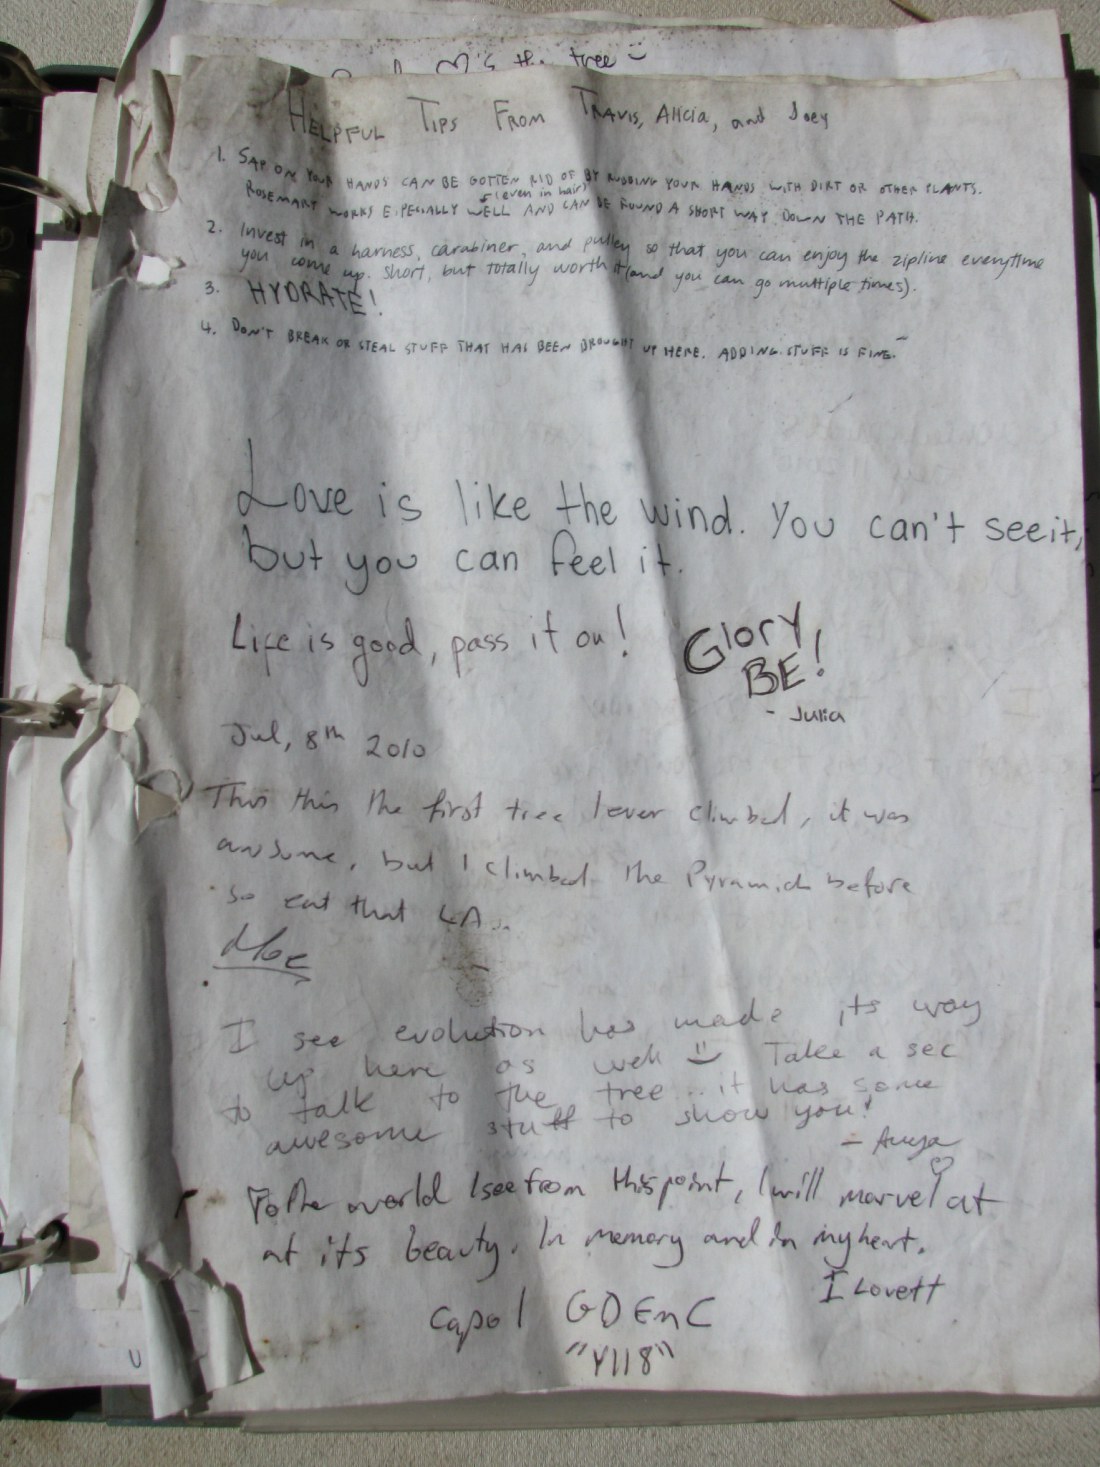 the tree
Helpful Tips From Travis, Alicia, and Joey
1. SAP ON YOUR HANDS CAN BE GOTTEN RID OF BY RUBBING YOUR HANDS WITH DIRT OR OTHER PLANTS.
(even in hair)
ROSEMARY WORKS ESPECIALLY WELL AND CAN BE FOUND A SHORT WAY DOWN THE PATH.
2. Invest in a harness, carabiner, and pulley so that you can enjoy the zipline everytime
you come up. Short, but totally worth it (and you can go multiple times).
3. HYDRATE!
4. DON'T BREAK OR STEAL STUFF THAT HAS BEEN BROUGHT UP HERE. ADDING STUFF IS FINE.
Love is like the wind. You can't see it,
but you can feel it.
Life is good, pass it on!
Glory,
BE!
- Julia
Jul, 8th 2010
This this the first tree I ever climbed, it was
awsome, but I climbed the Pyramids before
so eat that LA..
Moe
I see evolution has made its way
up here as well Take a sec
to talk to the tree... it has some
awesome stuff to show you!
To the world I see from this point, I will marvel at
at its beauty. In memory and in my heart.
I Lovett
Capol GDEnC
"Y118"
U